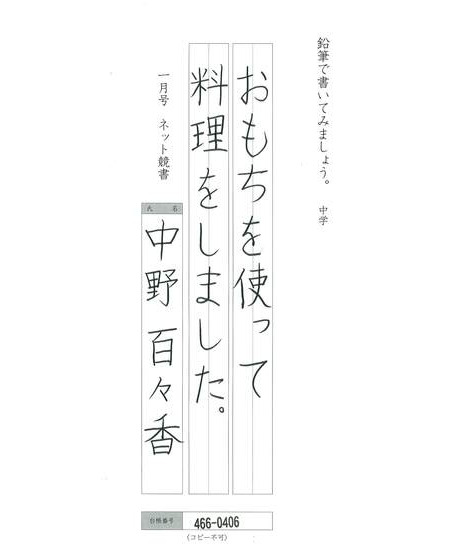 鉛筆で書いてみましょう。 中学
おもちを使って
料理をしました。
一月号 ネット競書
氏名
中野百々香
台帳番号 466-0406
(コピー不可)